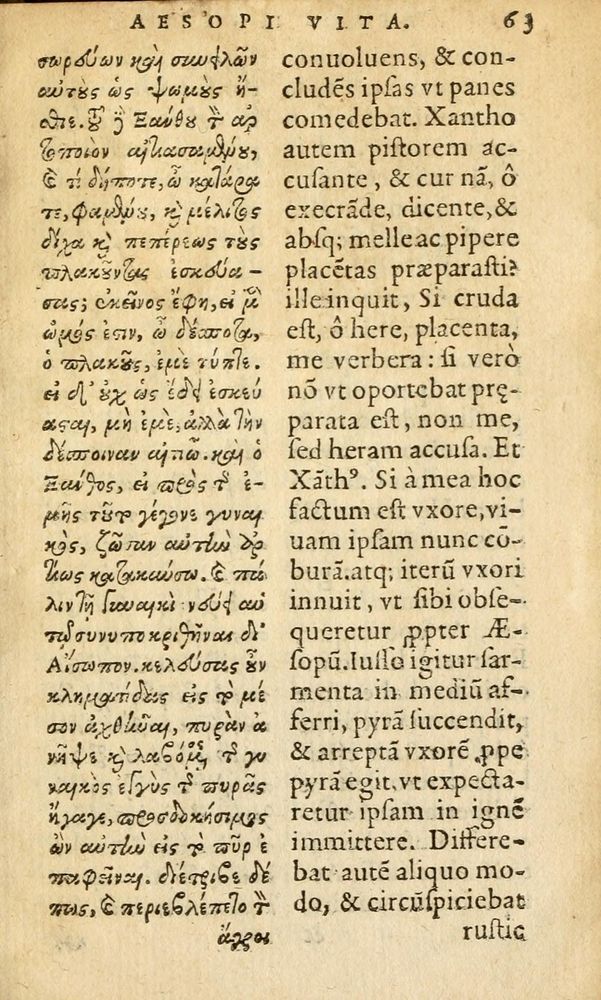 AESOPI VITA. 63
σωρδύων καὶ συνειλῶν
αὐτοὺς ὡς ψωμοὺς ἤ-
σθιε. τοῦ δὲ Ξάνθου τὸν ἀρ
τοποιὸν αἰτιασαμένου,
καὶ τί δήποτε, ὦ κατάρα
τε, φαμένου, καὶ μέλιτος
δίχα καὶ πεπέρεως τοὺς
πλακοῦντας ἐσκεύα-
σας; ἐκεῖνος ἔφη, εἰ μὲν
ὠμός ἐστιν, ὦ δέσποτα,
ὁ πλακοῦς, ἐμὲ τύπτε.
εἰ δ' οὐχ ὡς ἔδει ἐσκεύ
ασαι, μὴ ἐμὲ, ἀλλὰ τὴν
δέσποιναν αἰτιῶ. καὶ ὁ
Ξάνθος, εἰ πρὸς τῆς ἐ-
μῆς τοῦτο γέγονε γυναι
κὸς, ζῶσαν αὐτὴν ἄρ
τίως κατακαύσω. καὶ πά
λιν τῇ γυναικὶ νεύει αὐ
τῷ συνυποκριθῆναι δι'
Αἴσωπον. κελεύσας οὖν
κληματίδας εἰς τὸ μέ
σον ἀχθῆναι, πυρὰν ἀ
νῆψε καὶ λαβόμενος τῆς γυ
ναικὸς ἐγγὺς τῆς πυρᾶς
ἤγαγε, προσδοκήσιμος
ὢν αὐτὴν εἰς τὸ πῦρ ἐ
παφεῖναι. διέτριβε δέ
πως, καὶ περιεβλέπετο τὸν
ἄγροι
conuoluens, & con-
cludēs ipſas vt panes
comedebat. Xantho
autem piſtorem ac-
cuſante, & cur nā, ô
execrāde, dicente, &
abſq; melle ac pipere
placētas præparaſti?
ille inquit, Si cruda
eſt, ô here, placenta,
me verbera: ſi verò
nō vt oportebat prę-
parata eſt, non me,
ſed heram accuſa. Et
Xāthꝰ. Si à mea hoc
factum eſt vxore, vi-
uam ipſam nunc cō-
burā. atq; iterū vxori
innuit, vt ſibi obſe-
queretur ꝓpter Æ-
ſopū. Iuſſo igitur ſar-
menta in mediū af-
ferri, pyrā ſuccendit,
& arreptā vxorē ꝓpe
pyrā egit, vt expecta-
retur ipſam in ignē
immittere. Differe-
bat autē aliquo mo-
do, & circūſpiciebat
ruſtic